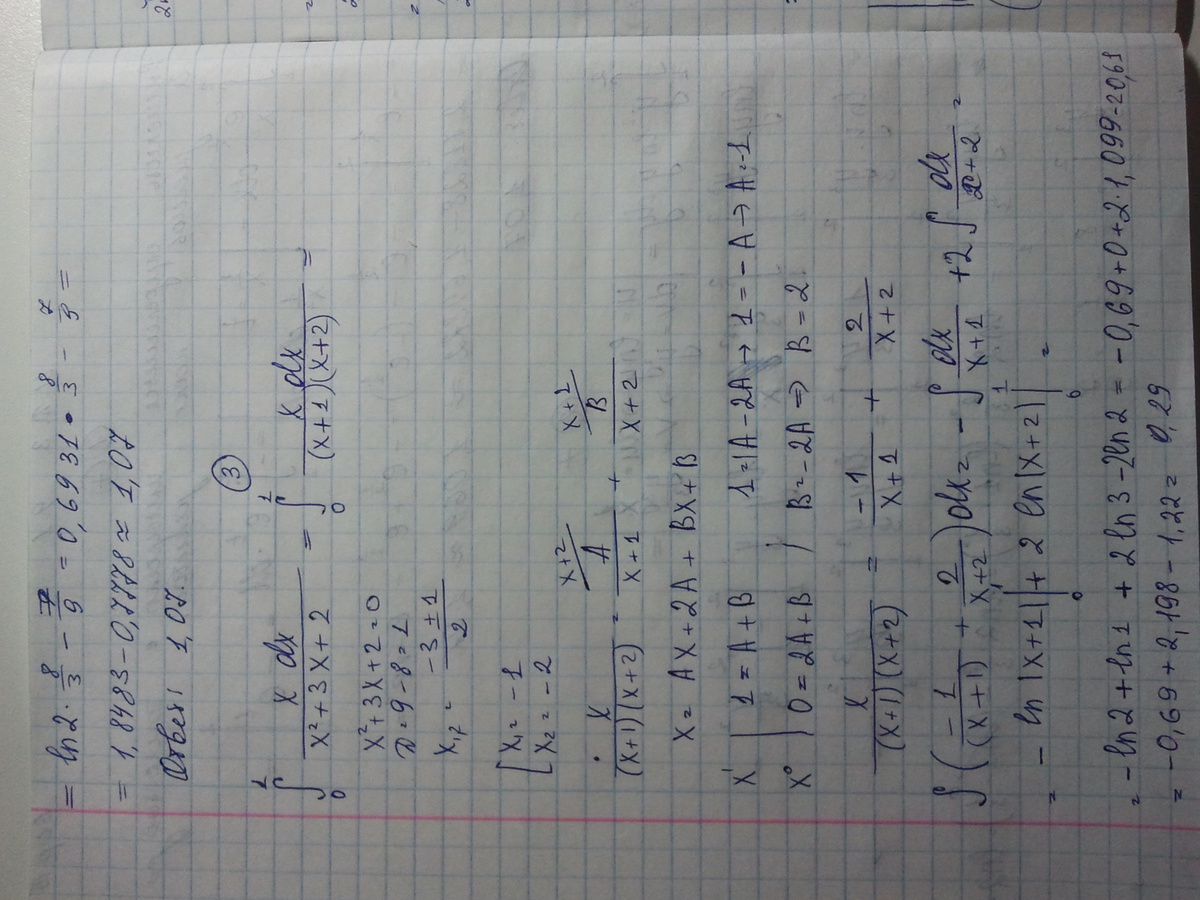 = ln2 · 8/3 − 7/9 = 0,6931 · 8/3 − 7/9 =
= 1,8483 − 0,7778 ≈ 1,07
Ответ: 1,07.
③
∫₀¹ x dx / (x²+3x+2) = ∫₀¹ x dx / ((x+1)(x+2)) =
x²+3x+2=0
D=9−8=1
x₁,₂ = (−3±1)/2
[x₁=−1
x₂=−2
x+2/ x+2/
· x/((x+1)(x+2)) = A/(x+1) + B/(x+2)
x = Ax+2A + Bx+B
x¹ | 1=A+B 1=1A−2A → 1=−A → A=−1
x⁰ | 0=2A+B | B=−2A => B=2
x/((x+1)(x+2)) = −1/(x+1) + 2/(x+2)
∫(−1/(x+1) + 2/(x+2))dx = −∫dx/(x+1) + 2∫dx/(x+2) =
= −ln|x+1| |₀ + 2 ln|x+2| |₀¹ =
= −ln2+ln1 + 2ln3−2ln2 = −0,69+0+2·1,099−20,69
= −0,69+2,198−1,22= 0,29